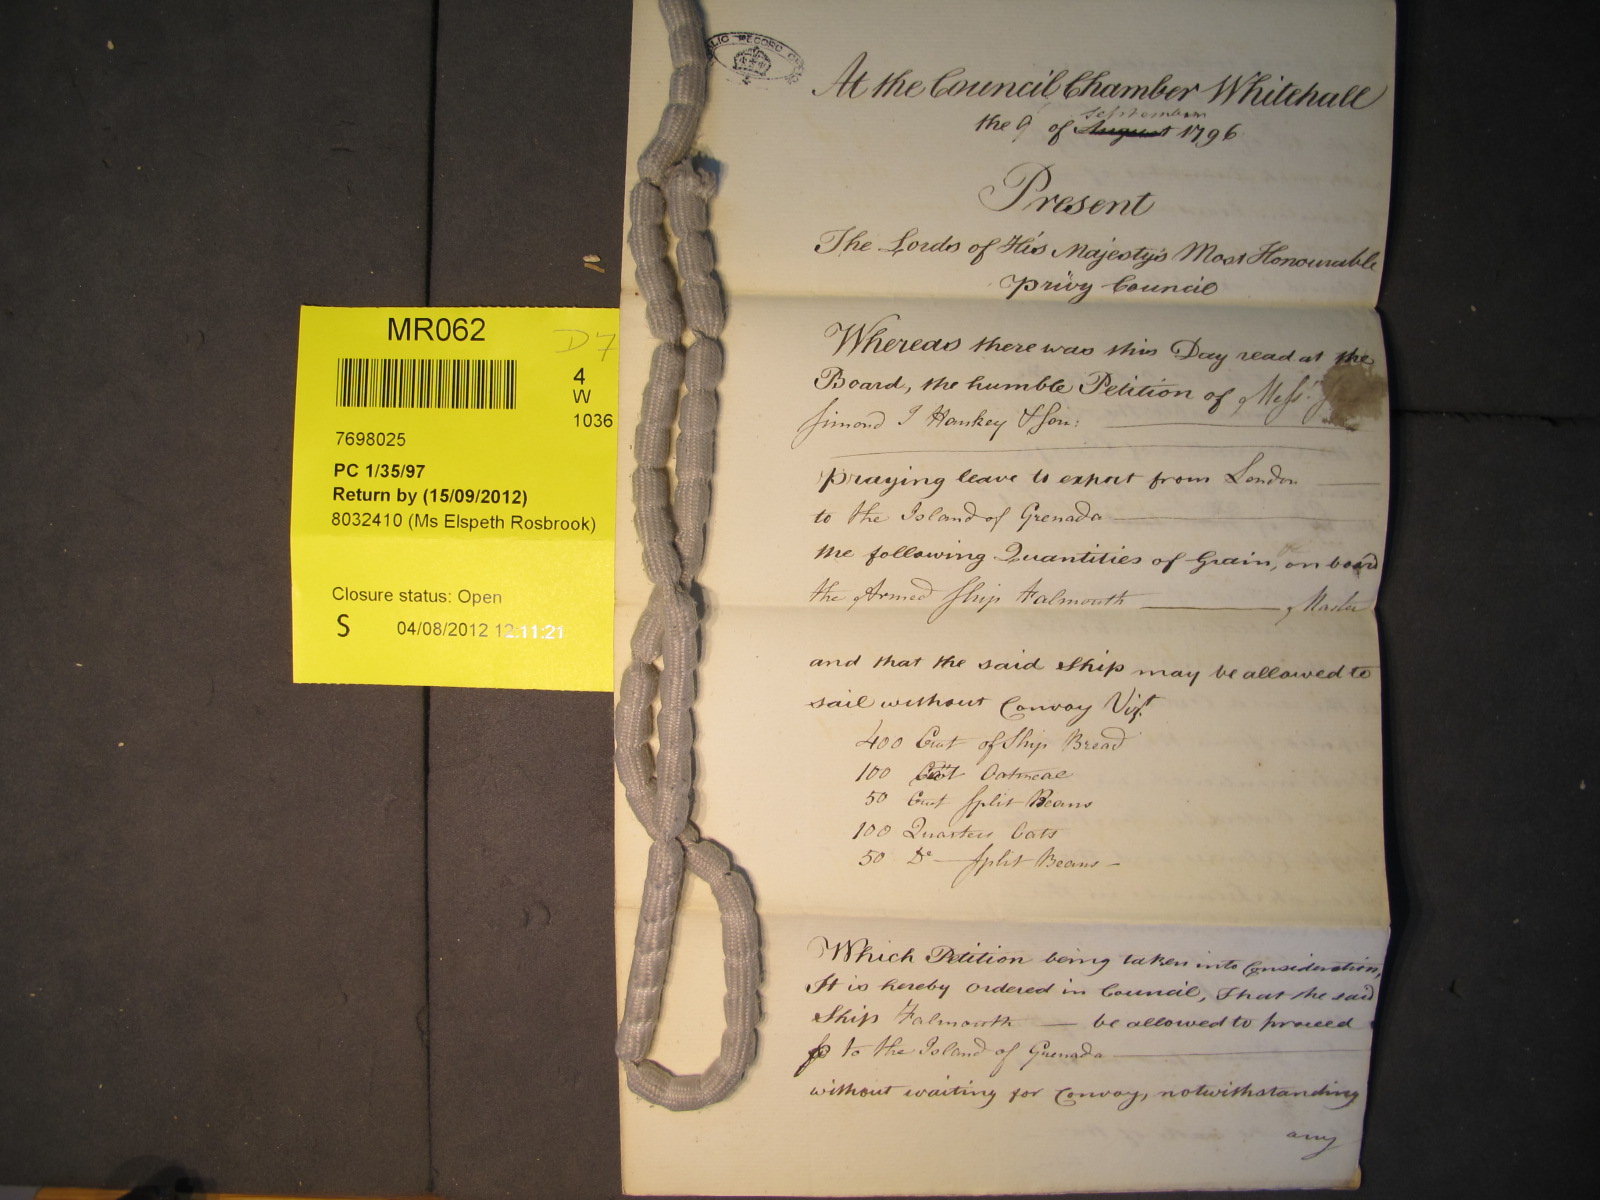 MR062
D7
4
W
1036
7698025
PC 1/35/97
Return by (15/09/2012)
8032410 (Ms Elspeth Rosbrook)
Closure status: Open
S 04/08/2012 12:11:21
PUBLIC RECORD OFFICE
At the Council Chamber Whitehall
the 9 of August September 1796
Present
The Lords of His Majesty's Most Honourable
Privy Council
Whereas there was this Day read at the
Board, the humble Petition of Messrs
Simond J Hankey & Son:
praying leave to export from London
to the Island of Grenada
the following Quantities of Grain, on board
the Armed Ship Falmouth Master
and that the said Ship may be allowed to
sail without Convoy Vizt
400 Cwt of Ship Bread
100 Cwt Oatmeal
50 Cwt Split Beans
100 Quarters Oats
50 Do Split Beans
Which Petition being taken into Consideration,
It is hereby Ordered in Council, That the said
Ship Falmouth be allowed to proceed
to the Island of Grenada
without waiting for Convoy, notwithstanding
any